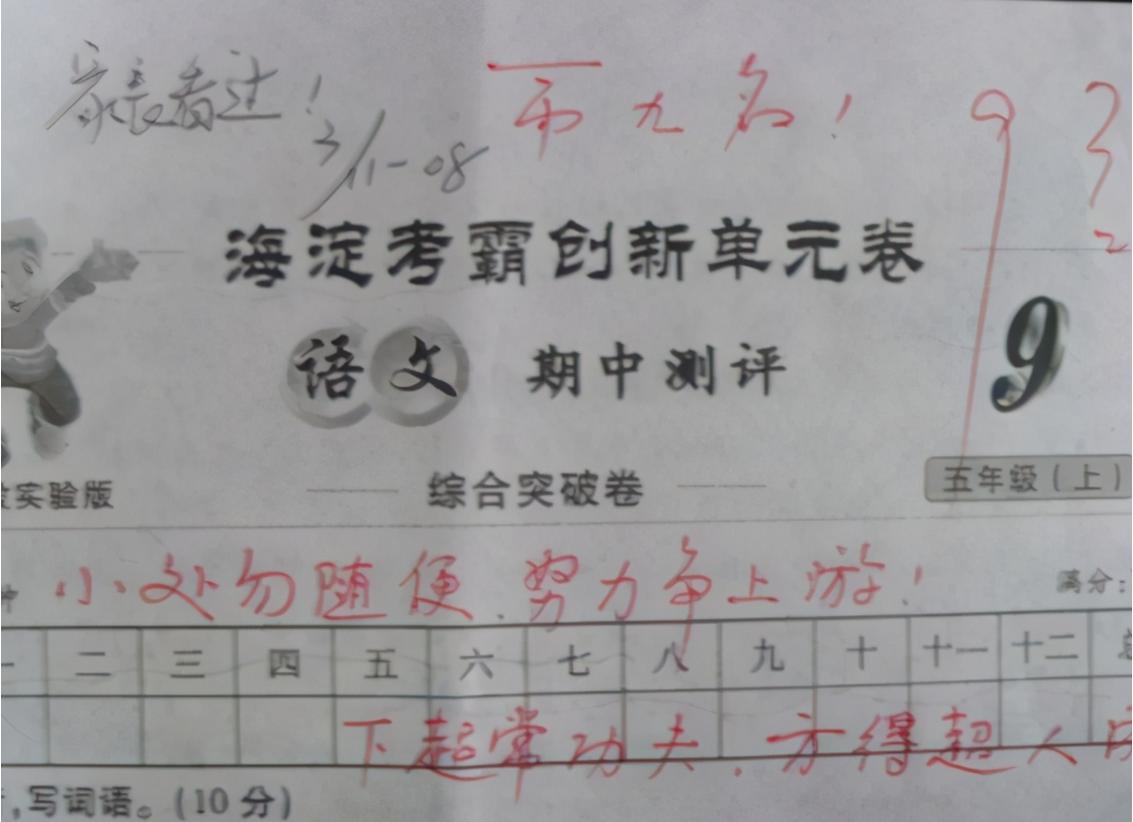 家长看过！ 第九名！
3/11-08
海淀考霸创新单元卷
语文 期中测评 9
实验版 综合突破卷 五年级（上）
小处勿随便.努力争上游！ 满分：
一 二 三 四 五 六 七 八 九 十 十一 十二 总
下超常功夫，方得超人
，写词语。（10分）